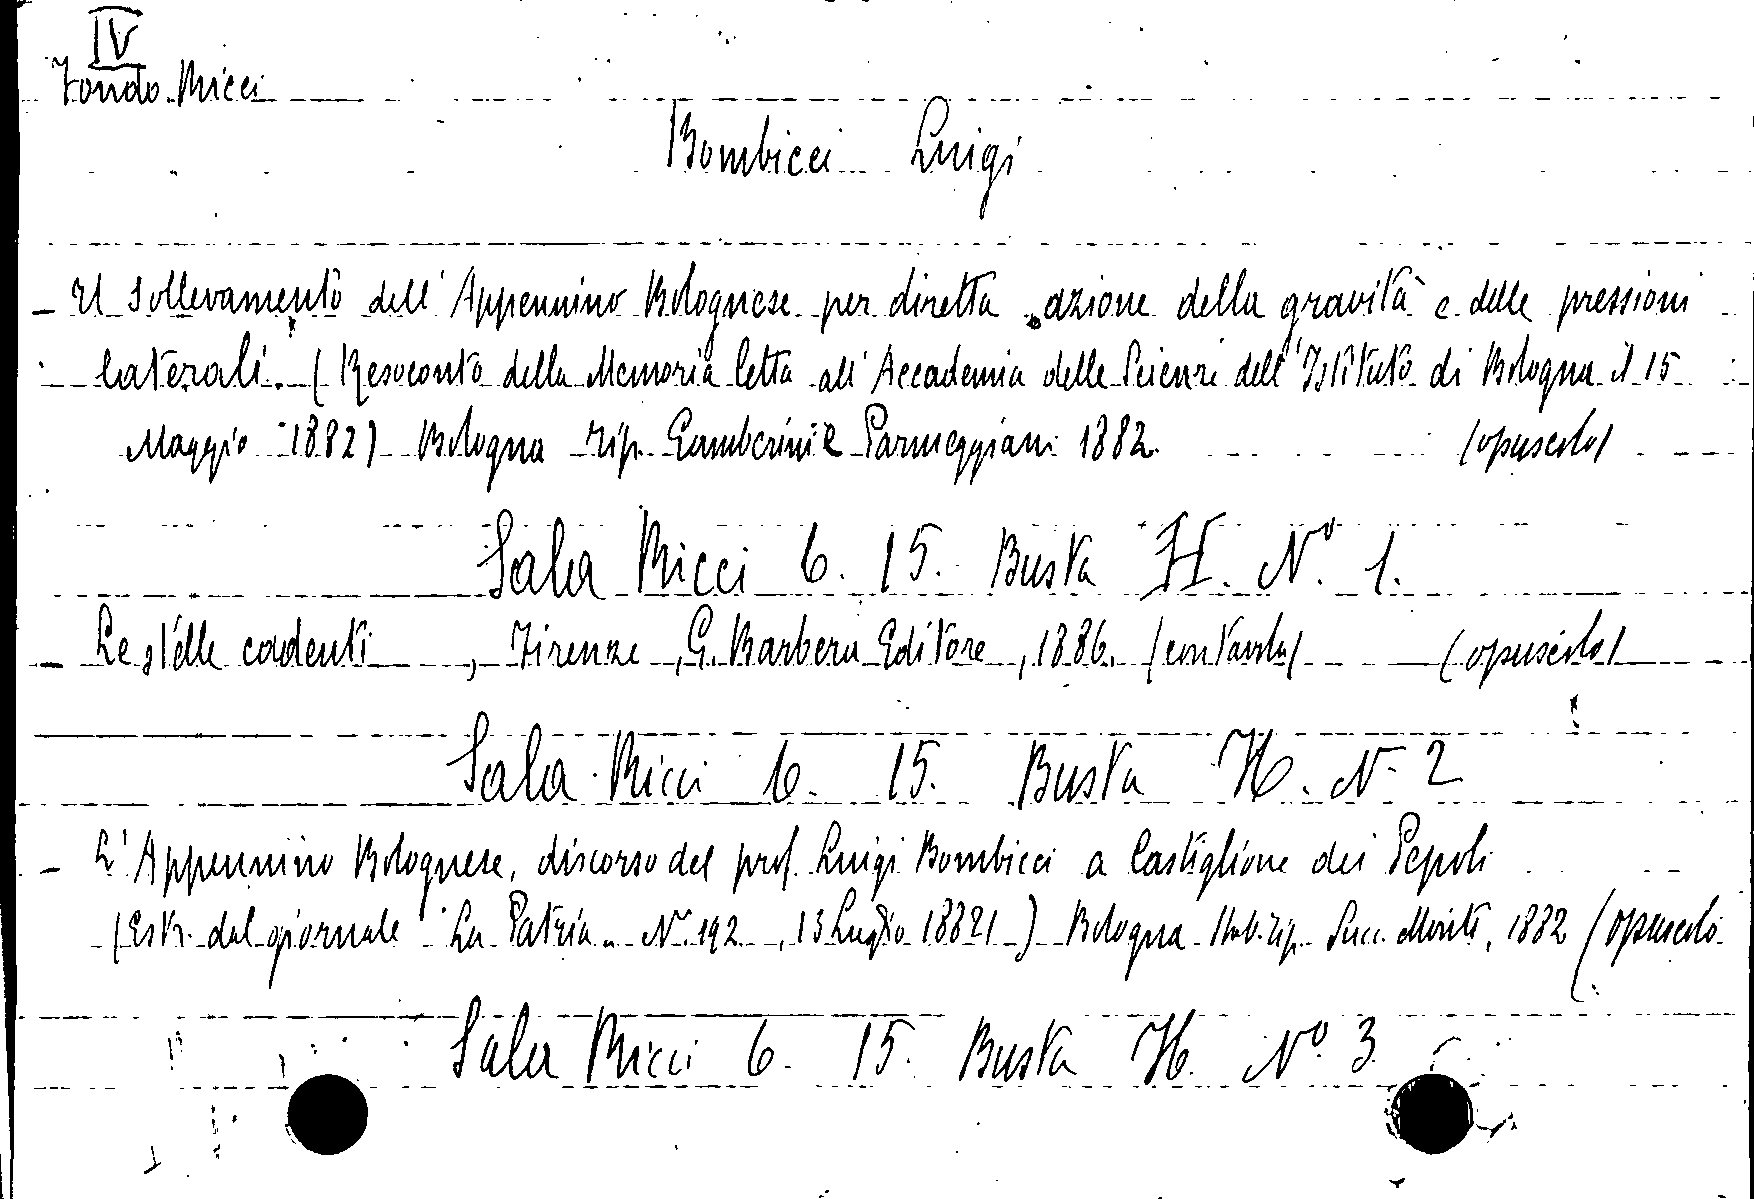 IV
Fondo Ricci
Bombicci Luigi
- Il sollevamento dell'Appennino Bolognese per diretta azione della gravità e delle pressioni
laterali. (Resoconto della Memoria letta all'Accademia delle Scienze dell'Istituto di Bologna il 15
Maggio 1882) Bologna Tip. Gamberini e Parmeggiani 1882. (opuscolo)
Sala Ricci 6. 15. Busta H. N° 1.
- Le stelle cadenti, Firenze, G. Barbera Editore, 1886. (con tavola) (opuscolo)
Sala Ricci 6. 15. Busta H. N. 2
- L'Appennino Bolognese, discorso del prof. Luigi Bombicci a Castiglione dei Pepoli
(Estr. dal giornale "La Patria" N° 192, 13 Luglio 1882) Bologna Stab. Tip. Succ. Monti, 1882 (opuscolo
Sala Ricci 6. 15. Busta H. N° 3